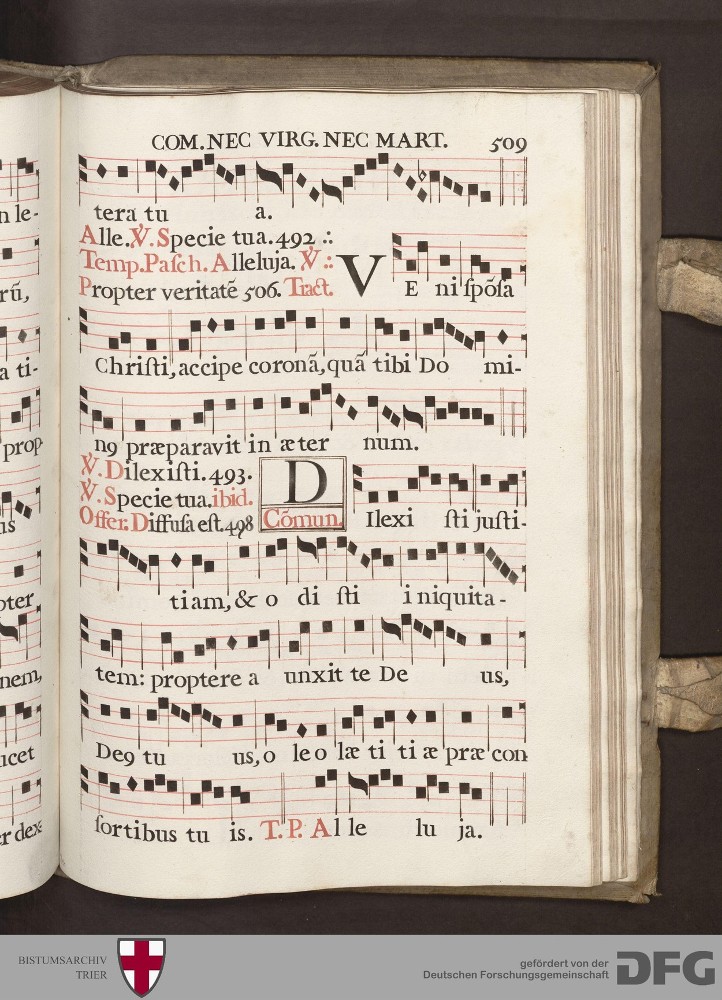 COM. NEC VIRG. NEC MART. 509
tera tu a.
Alle. ℣. Specie tua. 492 .:
Temp. Pasch. Alleluja. ℣ .:
Propter veritatẽ 506. Tract.
VE ni ſpõſa
Chriſti, accipe coronã, quã tibi Do mi-
nꝰ præparavit in æter num.
℣. Dilexiſti. 493.
℣. Specie tua. ibid.
Offer. Diffuſa eſt. 498
Cõmun.
DIlexi ſti juſti-
tiam, & o di ſti i niquita-
tem: proptere a unxit te De us,
Deꝰ tu us, o leo læ ti ti æ præ con
ſortibus tu is. T. P. Al le lu ja.
n le-
rũ,
a ti-
prop-
is
pter
nem,
ucet
er dex-
BISTUMSARCHIV
TRIER
gefördert von der
Deutschen Forschungsgemeinschaft
DFG